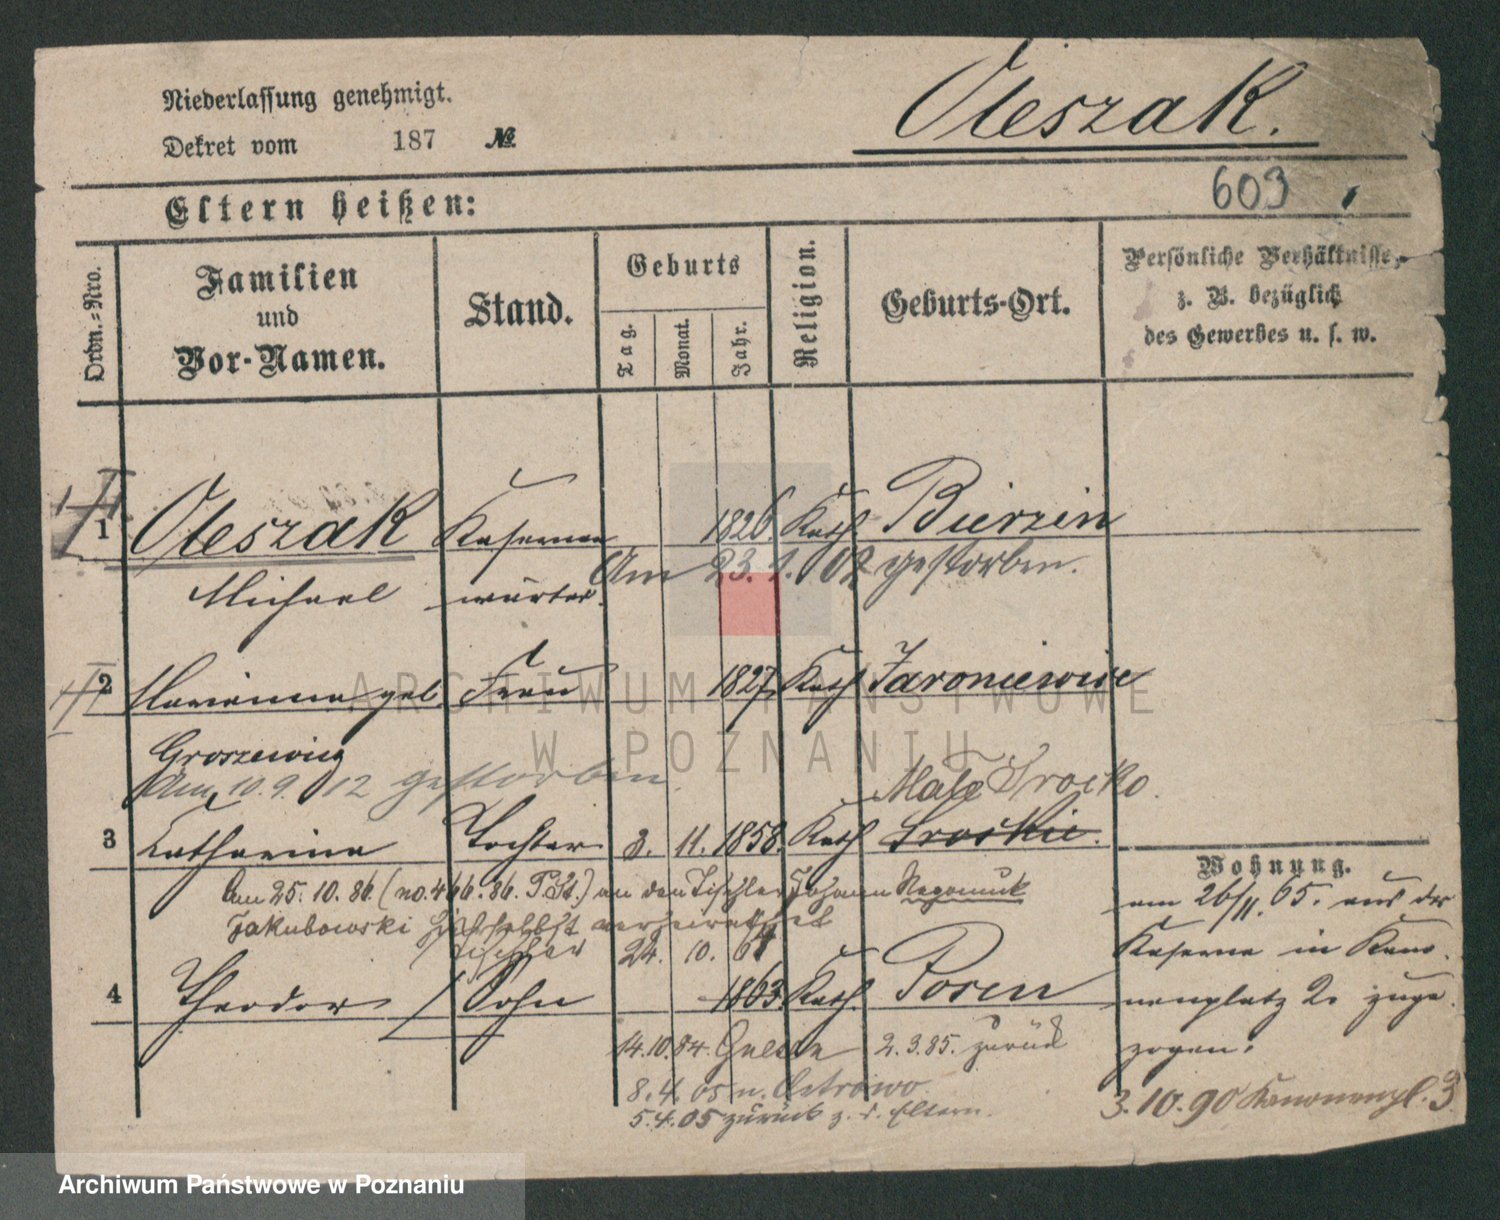 Niederlassung genehmigt.
Dekret vom 187 №
Oleszak.
Eltern heißen:
603
Ordn.-Nro.
Familien und Vor-Namen.
Stand.
Geburts
Tag.
Monat.
Jahr.
Religion.
Geburts-Ort.
Persönliche Verhältnisse,
z. B. bezüglich
des Gewerbes u. s. w.
1 Oleszak Kasernen 1826. Kath Bierzin
Am 23.1.02 gestorben.
Michael wärter.
2 Marianna geb. Frau 1827. Kath Jaroniewice
Groszewicz
Am 10.9.12 gestorben
Mala Srocko.
3 Catharina Tochter 3. 11. 1858. Kath Srockie.
Am 25.10.86. (no. 466.86. P.St.) an den Tischler Johann Nepomuk
Jakubowski hierselbst verheirathet
Tischler 24. 10. 64
4 Theodor Sohn 1863. Kath. Posen
14.10.84. 2.3.85. zurück
8.4.05 n. Ostrowo.
5.4.05 zurück z. d. Eltern.
Wohnung.
am 26/11.65. aus der
Kaserne in Kano-
nenplatz 2. zuge-
zogen.
3.10.90 Kanonenpl. 3
ARCHIWUM PAŃSTWOWE
W POZNANIU
Archiwum Państwowe w Poznaniu